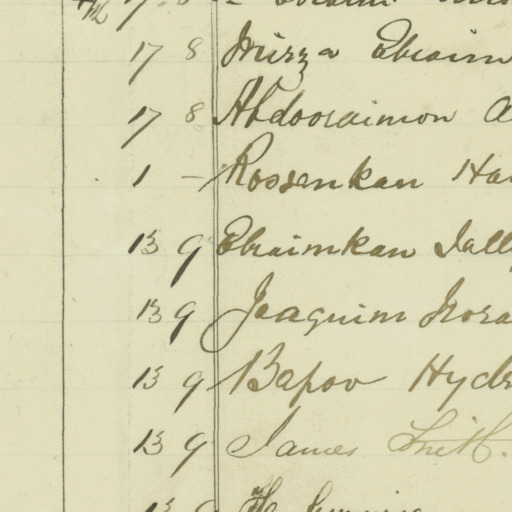 17 8 Mirza Ebraim
17 8 Abdooraimon A
1 - Roosenkan Ha
13 9 Ebraimkan
13 9 Joaquim
13 9 Bapoo Hyd
13 9 James Smith.